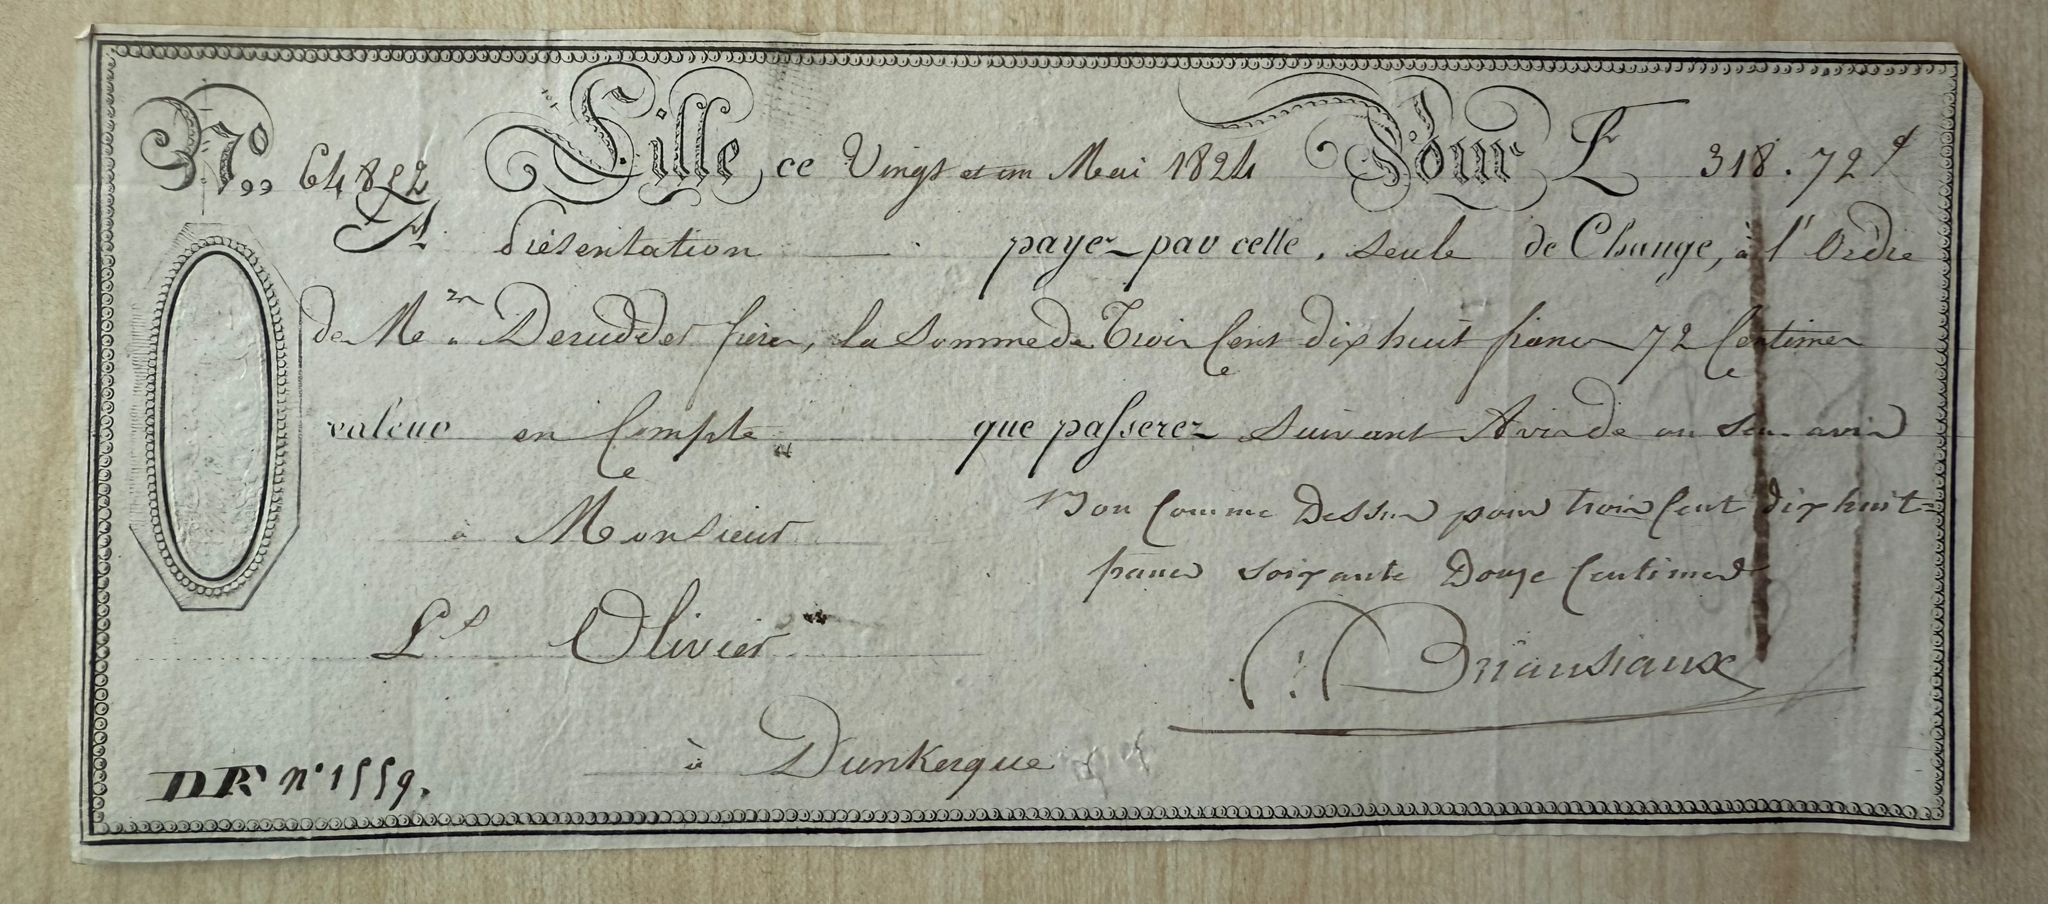 N.º 64852 Lille, ce Vingt et un Mai 1824 Pour L 318.72
A présentation payez par cette seule de Change, à l'Ordre
de M Derudder frères, la Somme de Trois Cent dix huit francs 72 Centimes
valeur en Compte que passerez Suivant Avis de ou San avis
à Monsieur
Bon Comme Dessus pour trois Cent dix huit
francs soixante Douze Centimes
Ls Olivier
Briansiaux
à Dunkerque
DR nº 1559.